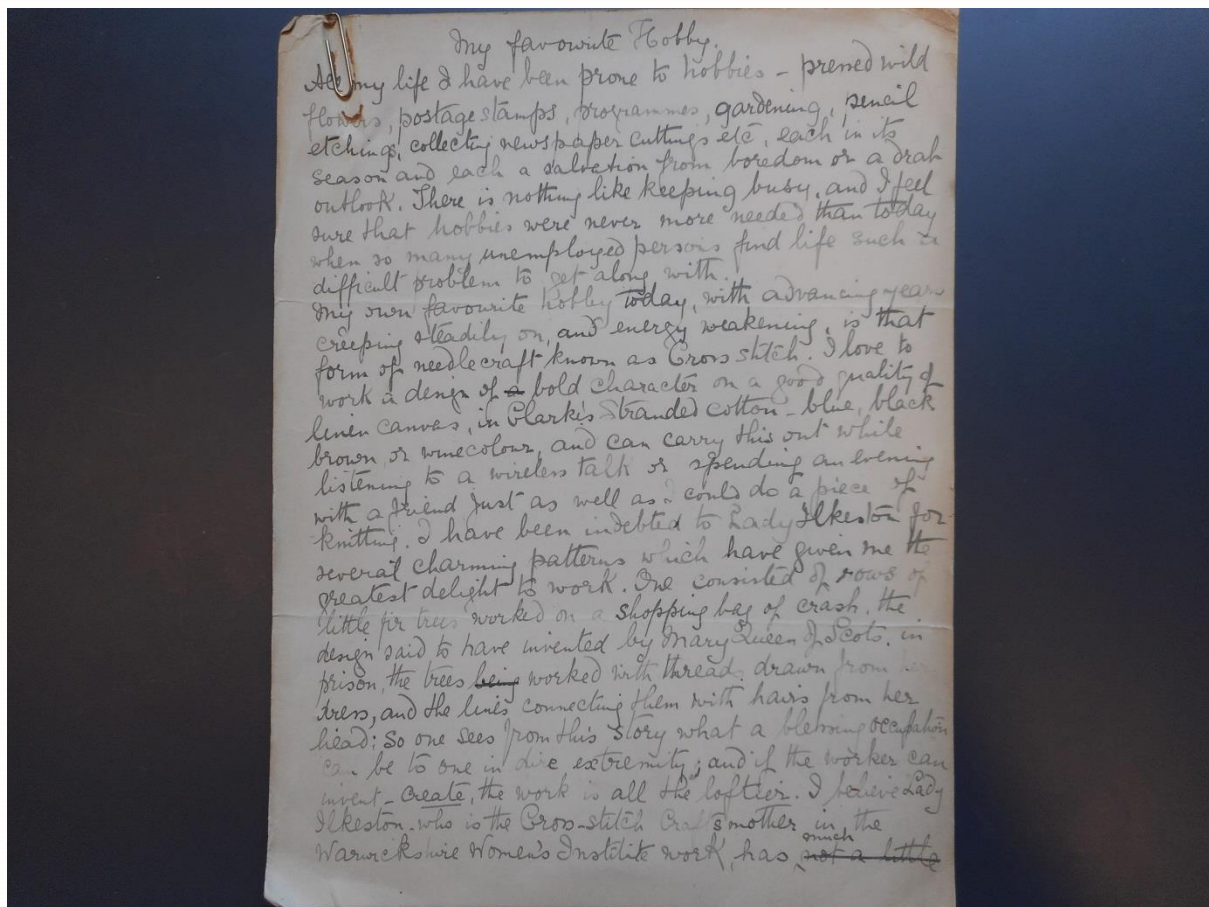 My favourite Hobby.
All my life I have been prone to hobbies – pressed wild
flowers, postage stamps, programmes, gardening, pencil
etchings, collecting newspaper cuttings etc, each in its
season and each a salvation from boredom or a drab
outlook. There is nothing like keeping busy, and I feel
sure that hobbies were never more needed than today
when so many unemployed persons find life such a
difficult problem to get along with.
My own favourite hobby today, with advancing years
creeping steadily on, and energy weakening, is that
form of needlecraft known as Cross stitch. I love to
work a design of a bold character on a good quality of
linen canvas, in Clark's Stranded cotton – blue, black
brown or winecolour, and can carry this out while
listening to a wireless talk or spending an evening
with a friend just as well as I could do a piece of
knitting. I have been indebted to Lady Ilkeston for
several charming patterns which have given me the
greatest delight to work. One consisted of rows of
little fir trees worked on a shopping bag of crash, the
design said to have invented by Mary Queen of Scots, in
prison, the trees being worked with thread, drawn from her
dress, and the lines connecting them with hairs from her
head: So one sees from this story what a blessing occupation
can be to one in dire extremity; and if the worker can
invent – create, the work is all the loftier. I believe Lady
Ilkeston, who is the Cross-stitch Crafts mother in the
Warwickshire Women's Institute work, has not a little much